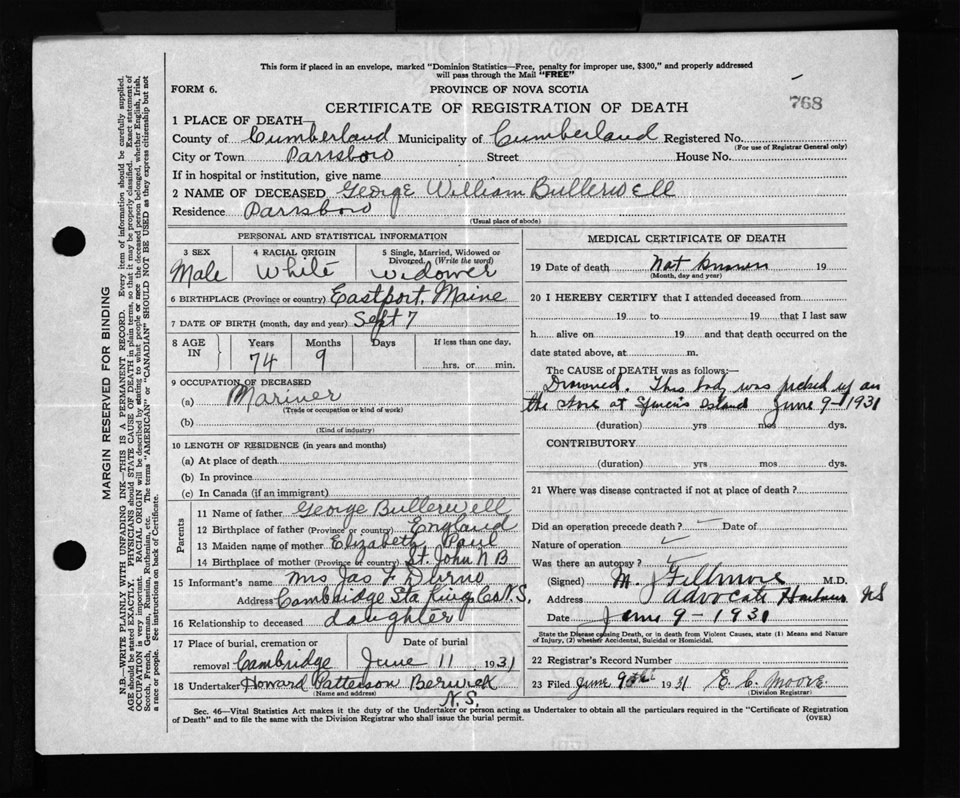 This form if placed in an envelope, marked "Dominion Statistics—Free, penalty for improper use, $300," and properly addressed
will pass through the Mail "FREE"
FORM 6.
PROVINCE OF NOVA SCOTIA
768
CERTIFICATE OF REGISTRATION OF DEATH
1 PLACE OF DEATH—
County of Cumberland Municipality of Cumberland Registered No.
(For use of Registrar General only)
City or Town Parrsboro Street House No.
If in hospital or institution, give name
2 NAME OF DECEASED George William Bullerwell
Residence Parrsboro
(Usual place of abode)
PERSONAL AND STATISTICAL INFORMATION
3 SEX 4 RACIAL ORIGIN 5 Single, Married, Widowed or
Divorced. (Write the word)
Male White Widower
6 BIRTHPLACE (Province or country) Eastport, Maine
7 DATE OF BIRTH (month, day and year) Sept 7
8 AGE IN Years Months Days If less than one day,
74 9 hrs. or min.
9 OCCUPATION OF DECEASED
(a) Mariner
(Trade or occupation or kind of work)
(b)
(Kind of industry)
10 LENGTH OF RESIDENCE (in years and months)
(a) At place of death
(b) In province
(c) In Canada (if an immigrant)
Parents
11 Name of father George Bullerwell
12 Birthplace of father (Province or country) England
13 Maiden name of mother Elizabeth Paul
14 Birthplace of mother (Province or country) St. John N B
15 Informant's name Mrs Jas F
Address Cambridge Sta Kings Co N.S.
16 Relationship to deceased daughter
17 Place of burial, cremation or Date of burial
removal Cambridge June 11 1931
18 Undertaker Howard Patterson Berwick
(Name and address)
N.S.
MEDICAL CERTIFICATE OF DEATH
19 Date of death Not known 19
(Month, day and year)
20 I HEREBY CERTIFY that I attended deceased from
19 to 19 that I last saw
h alive on 19 and that death occurred on the
date stated above, at m.
The CAUSE OF DEATH was as follows:—
Drowned. This body was picked up on
the shore at Spencers Island June 9-1931
(duration) yrs mos dys.
CONTRIBUTORY
(duration) yrs mos dys.
21 Where was disease contracted if not at place of death?
Did an operation precede death? ✓ Date of
Nature of operation ✓
Was there an autopsy? ✓
(Signed) M. J Fillmore M.D.
Address Advocate Harbour NS
Date June 9-1931
State the Disease causing Death, or in death from Violent Causes, state (1) Means and Nature
of Injury, (2) whether Accidental, Suicidal or Homicidal.
22 Registrar's Record Number
23 Filed June 1931 E. C. Moore
(Division Registrar)
Sec. 46—Vital Statistics Act makes it the duty of the Undertaker or person acting as Undertaker to obtain all the particulars required in the "Certificate of Registration
of Death" and to file the same with the Division Registrar who shall issue the burial permit.
(OVER)
MARGIN RESERVED FOR BINDING
N.B.—WRITE PLAINLY WITH UNFADING INK—THIS IS A PERMANENT RECORD. Every item of information should be carefully supplied.
AGE should be stated EXACTLY. PHYSICIANS should STATE CAUSE OF DEATH in plain terms, so that it may be properly classified. Exact statement of
OCCUPATION is very important. RACIAL ORIGIN will be described by stating to what people or race the deceased person belonged, whether English, Irish,
Scotch, French, German, Russian, Ruthenian, etc. The terms "AMERICAN" or "CANADIAN" SHOULD NOT BE USED as they express citizenship but not
a race or people. See instructions on back of Certificate.